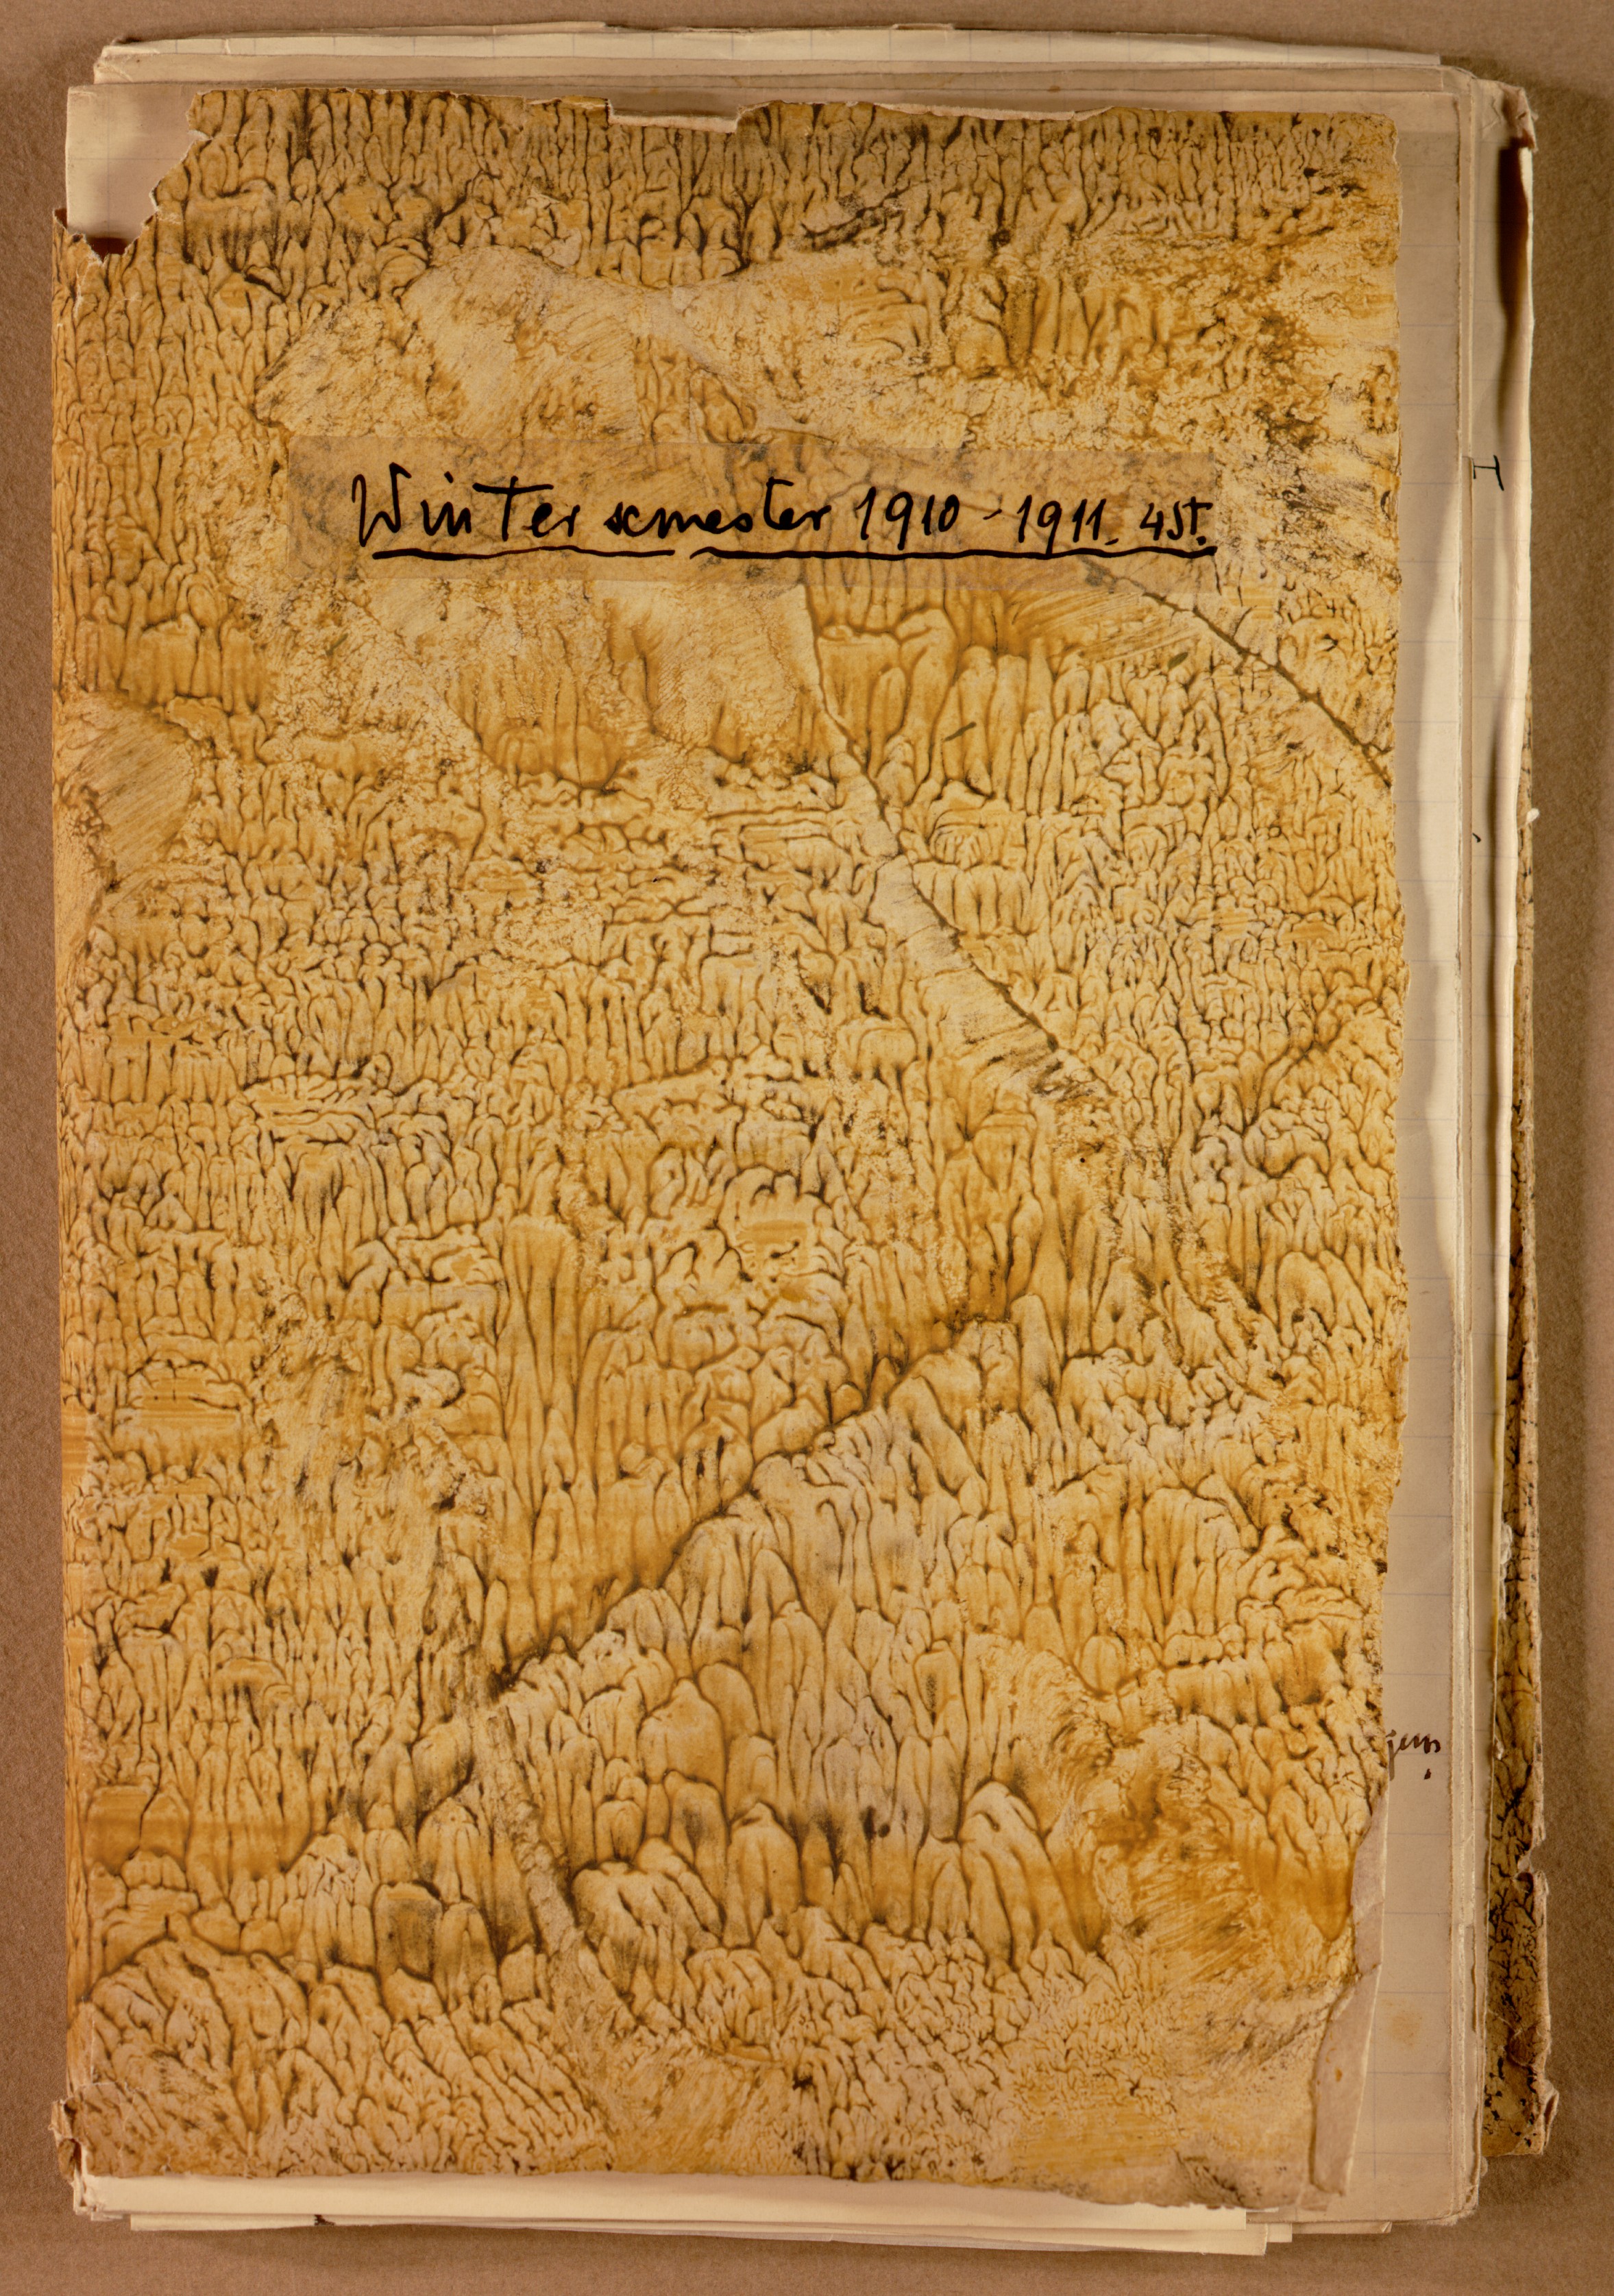 Wintersemester 1910-1911. 4St.
I